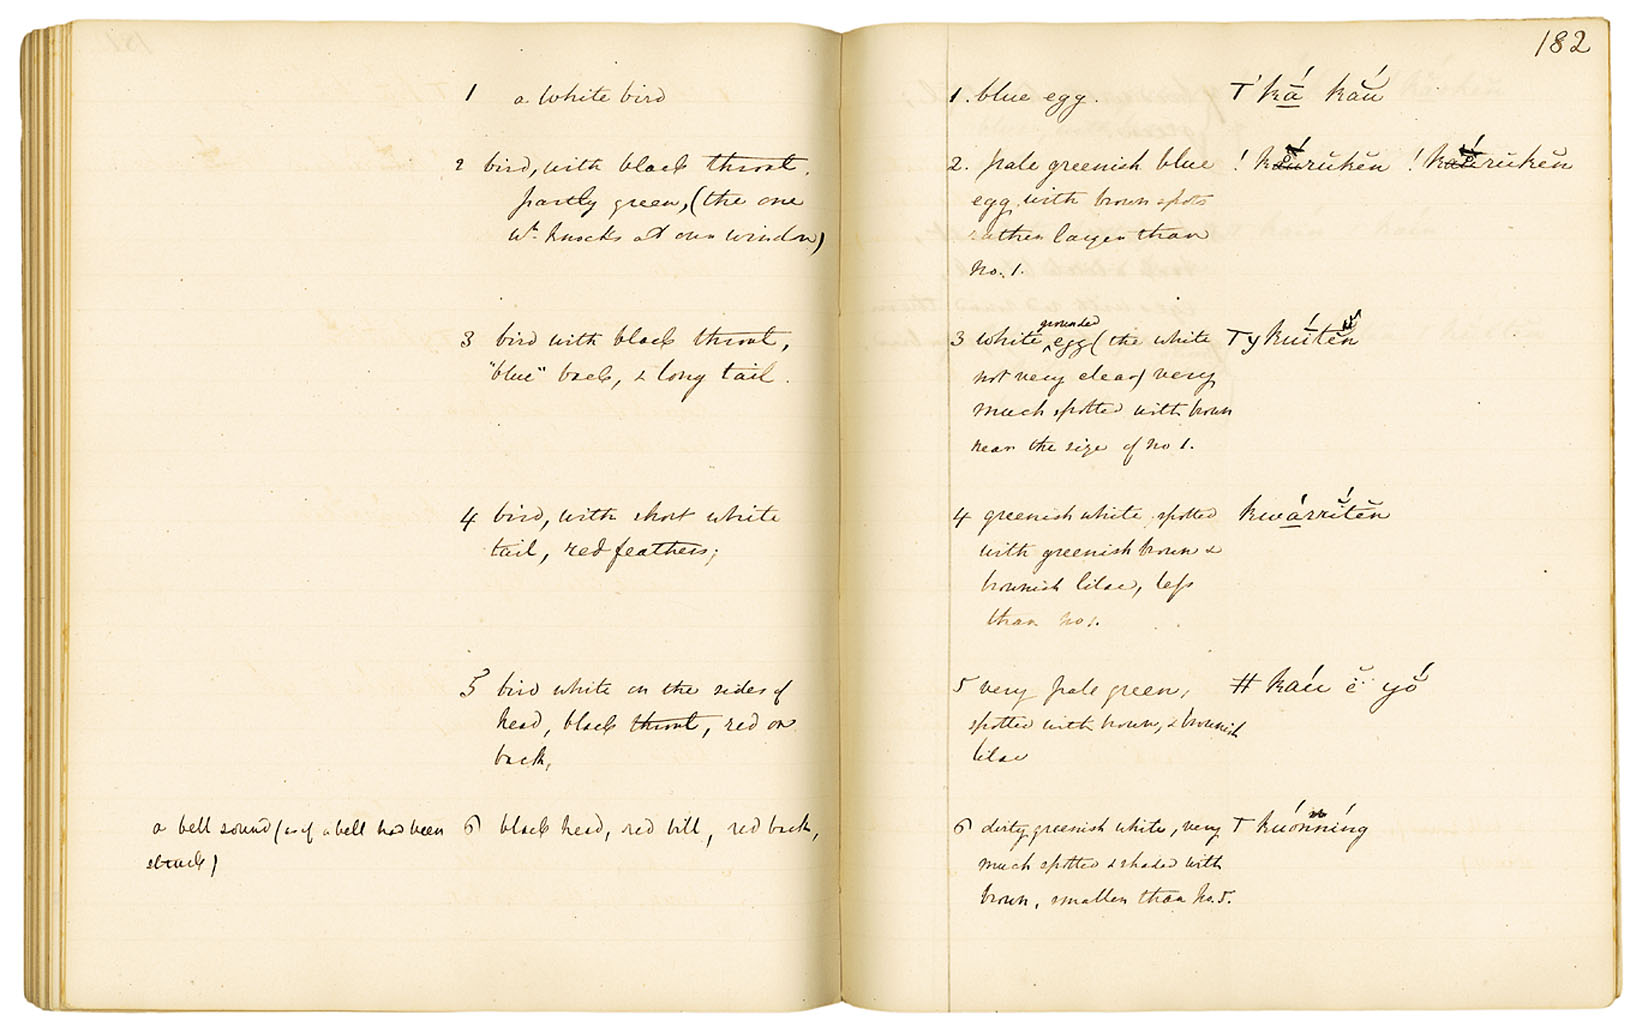 1 a white bird
2 bird, with black throat,
partly green, (the one
wh. knocks at our window)
3 bird with black throat,
"blue" back, & long tail.
4 bird, with short white
tail, red feathers;
5 bird white on the sides of
head, black throat, red on
back,
a bell sound (as if a bell had been
struck)
6 black head, red bill, red back,
182
1. blue egg. T ká kaŭ
2. pale greenish blue ! kaŭrŭkĕn ! kaŭrŭkĕn
egg, with brown spots
rather larger than
No. 1.
3 white grounded egg (the white Ty kuitĕn
not very clear) very
much spotted with brown
near the size of No 1.
4 greenish white, spotted kwárrĭtĕn
with greenish brown &
brownish lilac, less
than No 1.
5 very pale green, # kaú ĕ yó
spotted with brown, & brownish
lilac
6 dirty greenish white, very T kuónníng
much spotted & shaded with
brown, smaller than No. 5.